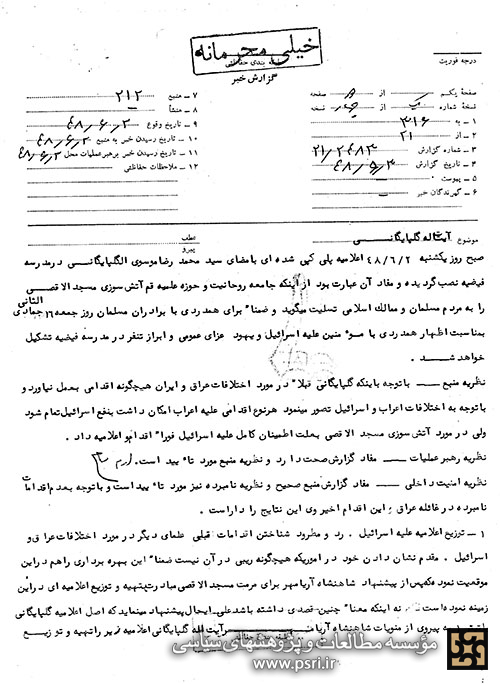 خیلی محرمانه
طبقه بندی حفاظتی
درجه فوریت
گزارش خبر
صفحه یکم از صفحه
نسخه شماره از نسخه
۱ - به ۳۱۶
۲ - از ۲۱
۳ - شماره گزارش ۲۱/۲۴۸۳
۴ - تاریخ گزارش
۵ - پیوست
۶ - گیرندگان خبر
۷ - منبع ۲۱۲
۸ - منشأ
۹ - تاریخ وقوع ۴۸/۶/۲
۱۰ - تاریخ رسیدن خبر به منبع ۴۸/۶/۲
۱۱ - تاریخ رسیدن خبر برهبر عملیات محل ۴۸/۶/۲
۱۲ - ملاحظات حفاظتی
موضوع آیت اله گلپایگانی
عطف
پیرو
صبح روز یکشنبه ۴۸/۶/۲ اعلامیه پلی کپی شده ای بامضای سید محمد رضا موسوی الگلپایگانی در مدرسه
فیضیه نصب گردیده و مفاد آن عبارت بود از اینکه جامعه روحانیت و حوزه علمیه قم آتش سوزی مسجد الاقصی
را به مردم مسلمان و ممالک اسلامی تسلیت میگوید و ضمنا" برای همدردی با برادران مسلمان روز جمعه ۱۶ جمادی الثانی
بمناسبت اظهار همدردی با مومنین علیه اسرائیل و یهود عزای عمومی و ابراز تنفر در مدرسه فیضیه تشکیل
خواهد شد .
نظریه منبع - باتوجه باینکه گلپایگانی قبلا" در مورد اختلافات عراق و ایران هیچگونه اقدامی بعمل نیاورد و
با توجه به اختلافات اعراب و اسرائیل تصور مینمود هرنوع اقدامی علیه اعراب امکان داشت بنفع اسرائیل تمام شود
ولی در مورد آتش سوزی مسجد الاقصی بعلت اطمینان کامل علیه اسرائیل فورا" اقدام و اعلامیه داد .
نظریه رهبر عملیات - مفاد گزارش صحت دارد و نظریه منبع مورد تائید است .
نظریه امنیت داخلی - مفاد گزارش منبع صحیح و نظریه نامبرده نیز مورد تائید است و باتوجه بعدم اقدامات
نامبرده در غائله عراق ، این اقدام اخیر وی این نتایج را دار است .
۱ - توزیع اعلامیه علیه اسرائیل . رد و مطرود شناختن اقدامات قبلی علمای دیگر در مورد اختلافات عراق و
اسرائیل . مقدم نشان دادن خود در اموریکه هیچگونه ریبی در آن نیست ضمنا" این بهره برداری را هم در این
موقعیت نموده که پس از پیشنهاد شاهنشاه آریامهر برای مرمت مسجد الاقصی مبادرت بتهیه و توزیع اعلامیه ای در این
زمینه نموده است نه اینکه معنا" چنین قصدی داشته باشد علی ایحال پیشنهاد مینماید که اصل اعلامیه گلپایگانی
پیروی از منویات شاهنشاه آریامهر آیت اله گلپایگانی اعلامیه زیر را تهیه و توزیع
مؤسسه مطالعات و پژوهشهای سیاسی
www.psri.ir